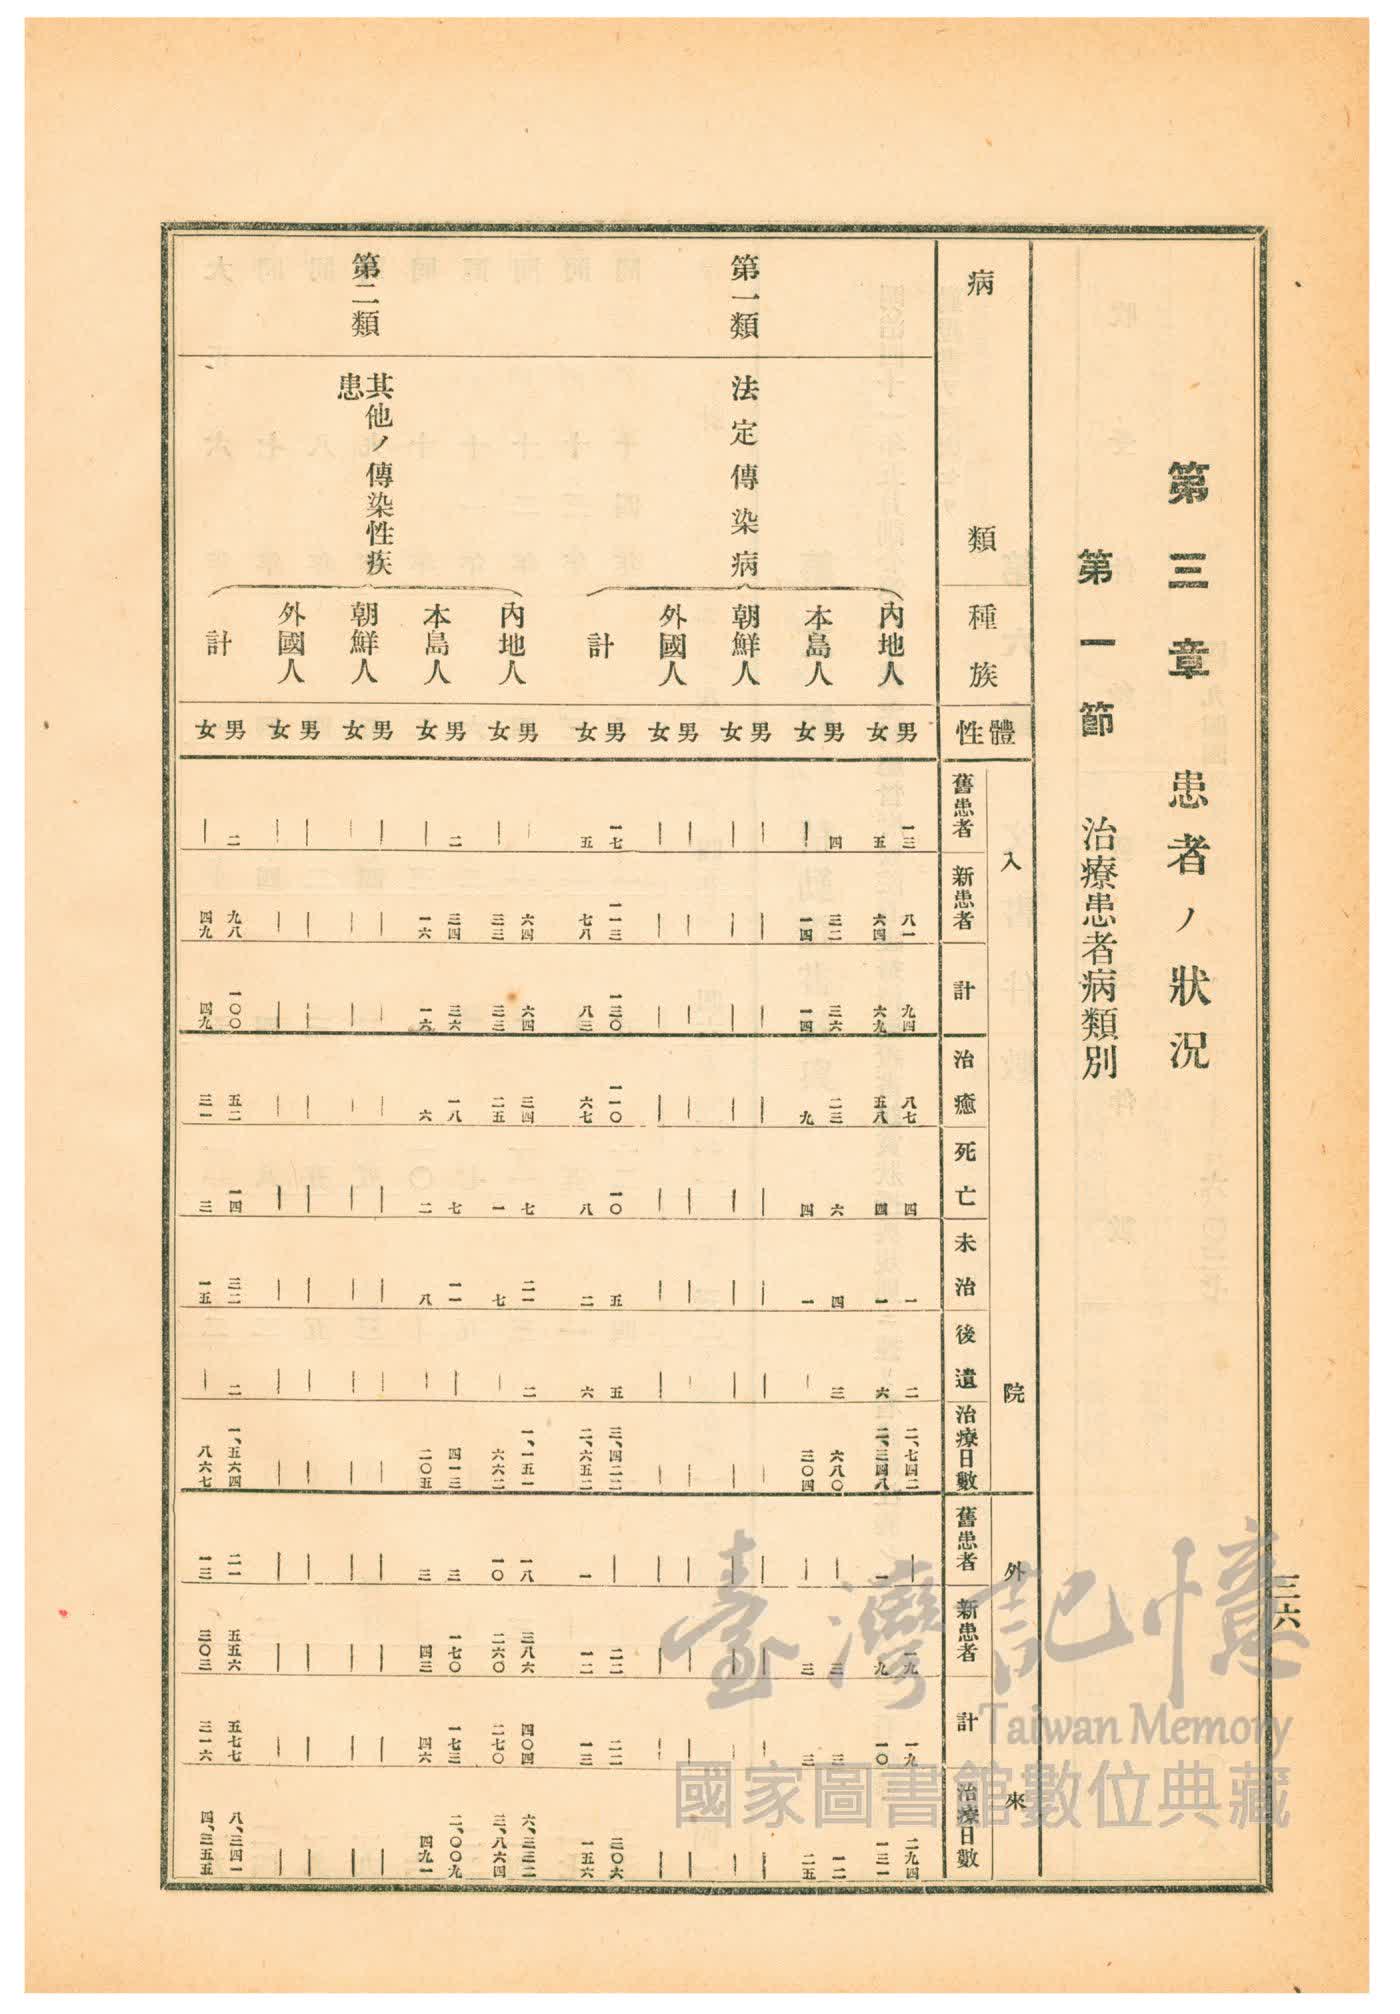 三六
第三章 患者ノ狀況
第一節 治療患者病類別
入院 外來
病類 種族 體性 舊患者 新患者 計 治癒 死亡 未治 後遺 治療日數 舊患者 新患者 計 治療日數
第一類 法定傳染病
內地人
男 一三 八一 九四 八七 四 一 二 二、七四二 ｜ 一九 一九 二九四
女 五 六四 六九 五八 四 一 六 二、三四八 一 九 一〇 一三一
本島人
男 四 三二 三六 二三 六 四 三 六八〇 ｜ 三 三 一二
女 ｜ 一四 一四 九 四 一 ｜ 三〇四 ｜ 三 三 二五
朝鮮人
男 ｜ ｜ ｜ ｜ ｜ ｜ ｜ ｜ ｜ ｜ ｜ ｜
女 ｜ ｜ ｜ ｜ ｜ ｜ ｜ ｜ ｜ ｜ ｜ ｜
外國人
男 ｜ ｜ ｜ ｜ ｜ ｜ ｜ ｜ ｜ ｜ ｜ ｜
女 ｜ ｜ ｜ ｜ ｜ ｜ ｜ ｜ ｜ ｜ ｜ ｜
計
男 一七 一一三 一三〇 一一〇 一〇 五 五 三、四二二 ｜ 二二 二二 三〇六
女 五 七八 八三 六七 八 二 六 二、六五二 一 一二 一三 一五六
第二類 其他ノ傳染性疾患
內地人
男 ｜ 六四 六四 三四 七 二一 二 一、一五一 一八 三八六 四〇四 六、三三二
女 ｜ 三三 三三 二五 一 七 ｜ 六六二 一〇 二六〇 二七〇 三、八六四
本島人
男 二 三四 三六 一八 七 一一 ｜ 四一三 三 一七〇 一七三 二、〇〇九
女 ｜ 一六 一六 六 二 八 ｜ 二〇五 三 四三 四六 四九一
朝鮮人
男 ｜ ｜ ｜ ｜ ｜ ｜ ｜ ｜ ｜ ｜ ｜ ｜
女 ｜ ｜ ｜ ｜ ｜ ｜ ｜ ｜ ｜ ｜ ｜ ｜
外國人
男 ｜ ｜ ｜ ｜ ｜ ｜ ｜ ｜ ｜ ｜ ｜ ｜
女 ｜ ｜ ｜ ｜ ｜ ｜ ｜ ｜ ｜ ｜ ｜ ｜
計
男 二 九八 一〇〇 五二 一四 三二 二 一、五六四 二一 五五六 五七七 八、三四一
女 ｜ 四九 四九 三一 三 一五 ｜ 八六七 一三 三〇三 三一六 四、三五五
臺灣記憶
Taiwan Memory
國家圖書館數位典藏